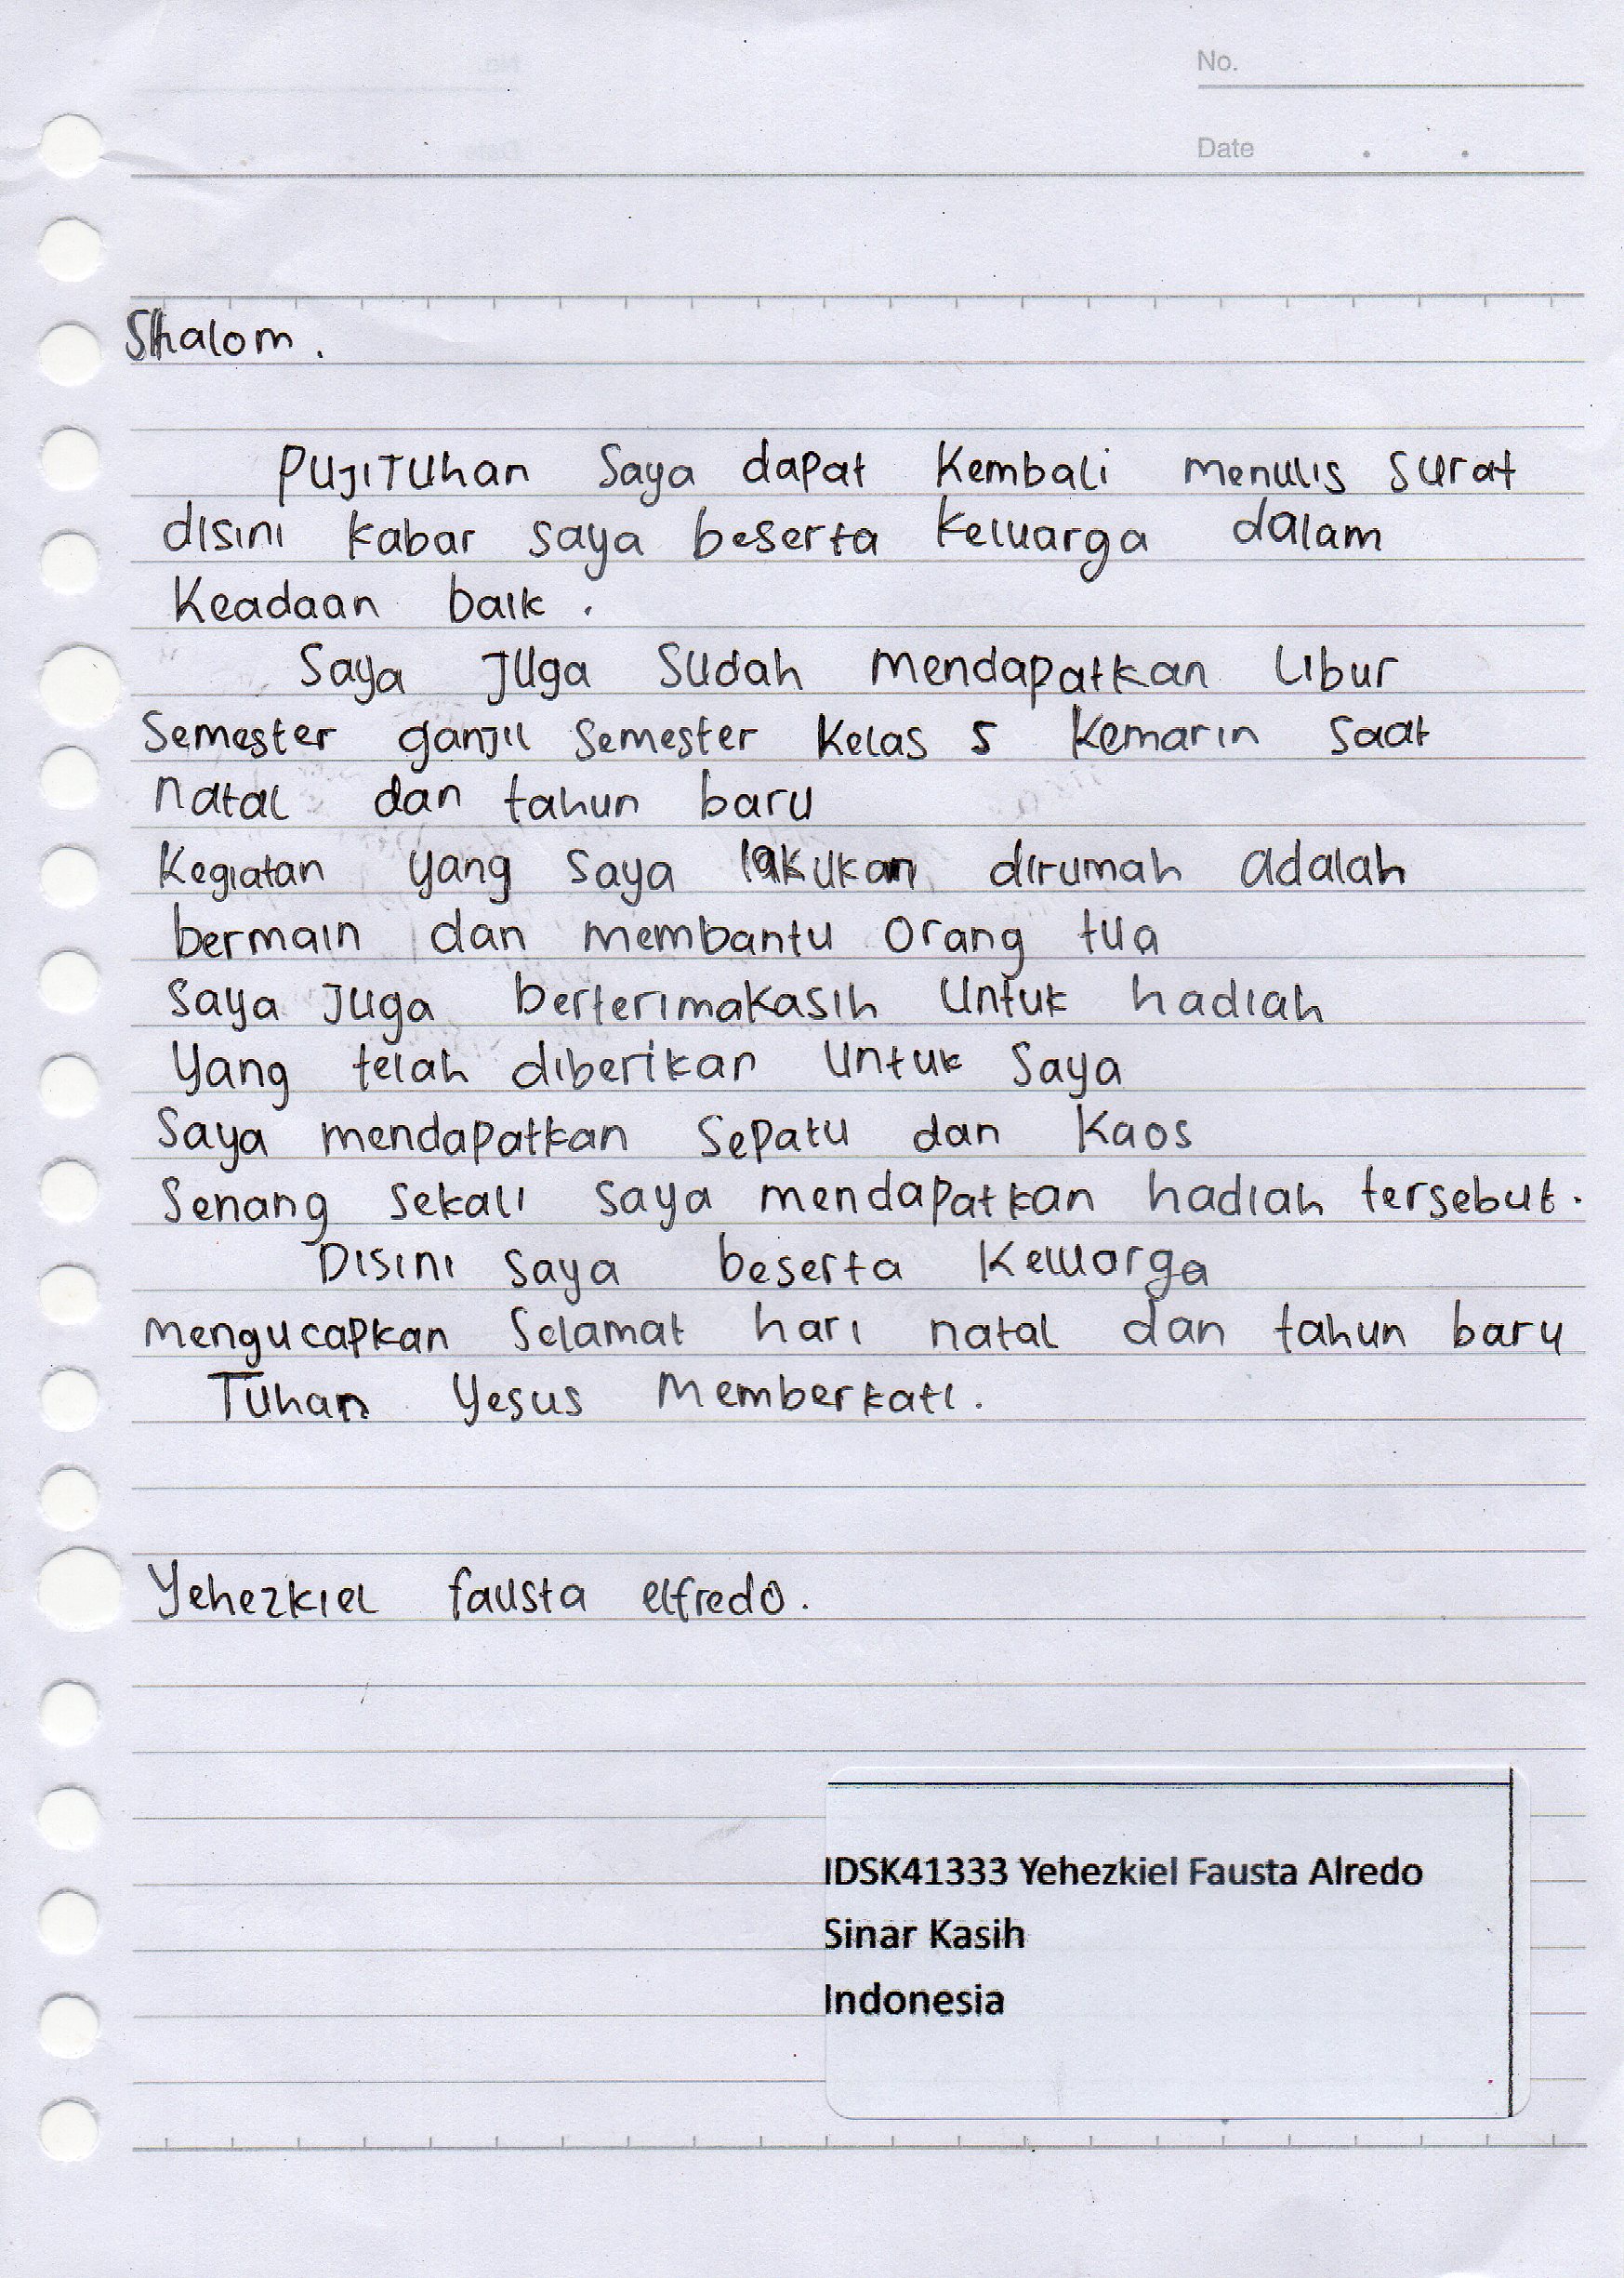 No.
Date
Shalom.
PUJITUhan Saya dapat Kembali menulis surat
disini kabar saya beserta keluarga dalam
Keadaan baik.
Saya Juga Sudah mendapatkan Libur
Semester ganjil Semester Kelas 5 Kemarin Saat
natal dan tahun baru
Kegiatan yang saya lakukan dirumah adalah
bermain dan membantu Orang tua
Saya Juga berterimakasih Untuk hadiah
Yang telah diberikan Untuk Saya
Saya mendapatkan Sepatu dan Kaos
Senang Sekali saya mendapatkan hadiah tersebut.
Disini saya beserta Keluarga
mengucapkan Selamat hari natal dan tahun baru
Tuhan Yesus Memberkati.
Yehezkiel fausta elfredo.
IDSK41333 Yehezkiel Fausta Alredo
Sinar Kasih
Indonesia